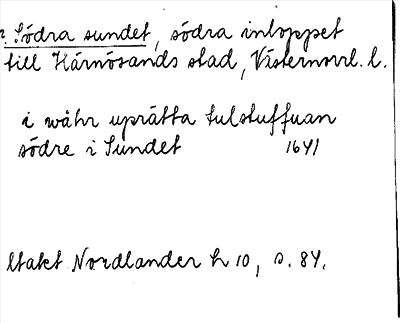 Södra sundet, södra inloppet
till Härnösands stad, Västernorrl. l.
i wåhr uprätta tulstuffuan
södre i Sundet 1641
Utakt Nordlander h 10, s. 84.